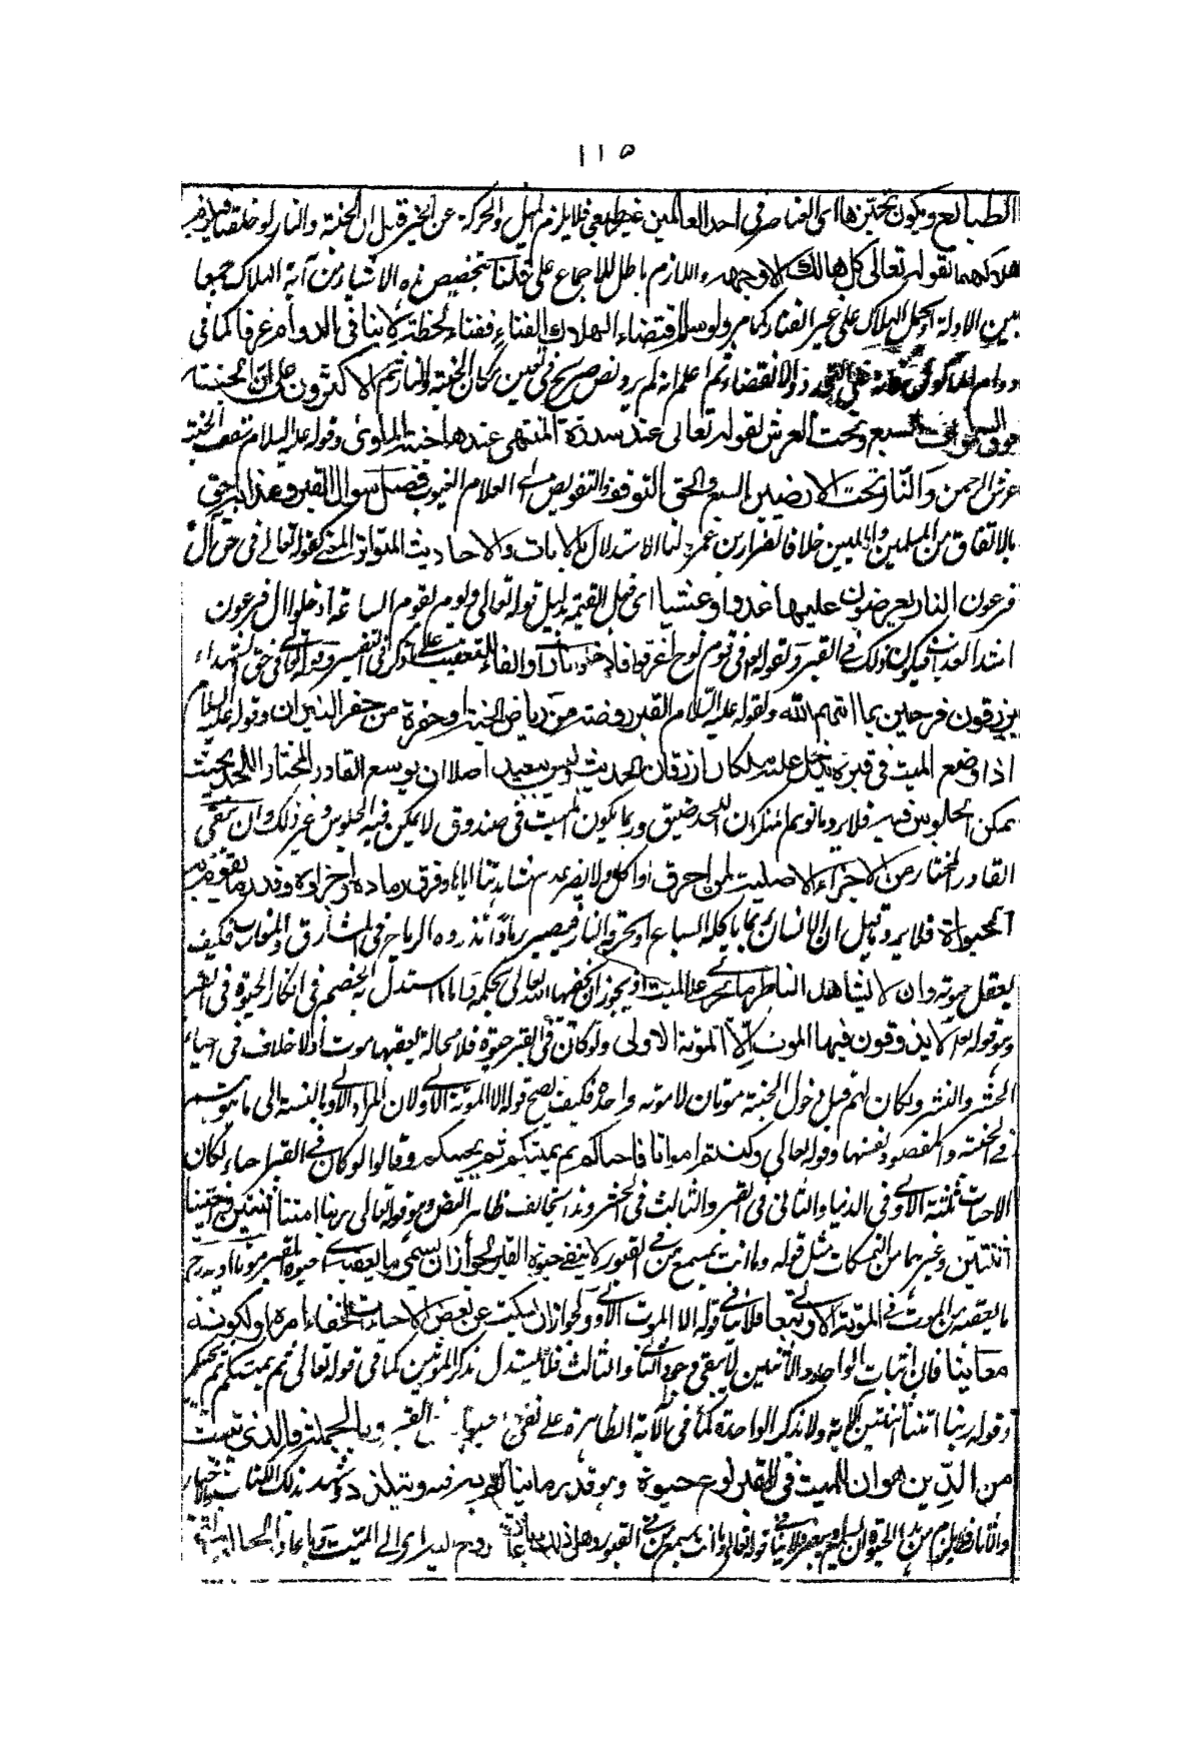 ١١٥
الطبائع ويكون تحيزها اى العناصر فى احد العالمين غير طبيعى فلا يلزم الميل والحركة عن الخير قيل ان الجنة والنار لو خلقتا
هلاكهما لقوله تعالى كل هالك الا وجهه واللازم باطل للاجماع على قلنا تخصيص هذه الاشياء من آية الهلاك جمعا
بين الادلة او يحمل الهلاك على غير الفناء كما مر ولو سلم اقتضاء الهلاك الفناء ففناء لحظة لا ينافى الدوام عرفا كما فى
دوام على التجدد والانقضاء ثم اعلم انه لم يرد نص صريح فى تعيين مكان الجنة والنار ثم الاكثرون على ان الجنة
فوق السموات السبع وتحت العرش لقوله تعالى عند سدرة المنتهى عندها جنة المأوى وقوله عليه السلام سقف الجنة
عرش الرحمن والنار تحت الارضين السبع والحق التوقف والتفويض الى العلام الغيوب فصل سوال القبر وعذابه حق
بالاتفاق من المسلمين خلافا لضرار بن عمرو لنا الاستدلال بالآيات والاحاديث المتواتر المعنى كقوله تعالى فى حق آل
فرعون النار يعرضون عليها غدوا وعشيا اى قبل القيمة بدليل قوله تعالى ويوم تقوم الساعة ادخلوا ال فرعون
اشد العذاب فيكون ذلك فى القبر ولقوله تعالى فى قوم نوح اغرقوا فادخلوا نارا والفاء للتعقيب على ما ذكر فى التفسير وقوله تعالى فى حق الشهداء
يرزقون فرحين بما اتهم الله ولقوله عليه السلام القبر روضة من رياض الجنة او حفرة من حفر النيران وقوله عليه السلام
اذا وضع الميت فى قبره يدخل عليه ملكان ازرقان الحديث وليس ببعيد اصلا ان يوسع القادر المختار اللحد بحيث
يمكن الجلوس فيه فلا يرد ما توهم المنكر ان اللحد ضيق وربما يكون الميت فى صندوق لا يمكن فيه الجلوس وغير ذلك وان يبقى
القادر المختار من الاجزاء الاصلية لمن احرق او اكل ولا يضر عدم مشاهدتنا اياها وفرق رماده او اجزاؤه وقدر ما يقوم به
الحيوة فلا يرد ما قيل ان الانسان ربما ياكله السباع او تحرقه النار فيصير رمادا تذروه الرياح فى المشارق والمغارب فكيف
يعقل حيوته وان لا يشاهد الناظر ما يجرى على الميت اذ يجوز ان يخفيها الله تعالى لحكمة واما ما استدل به الخصم فى انكار الحيوة فى القبر
وهو قوله تعالى لا يذوقون فيها الموت الا الموتة الاولى ولو كان فى القبر حيوة فلا محالة يعقبها موت اذ لا خلاف فى احياء
الحشر والنشر ولكان لهم قبل دخول الجنة موتتان لا موتة واحدة فكيف يصح قوله الا الموتة الاولى ولان المراد الاولى بالنسبة الى ما يتوهم
فى الجنة والمقصود نفيها وقوله تعالى وكنتم امواتا فاحياكم ثم يميتكم ثم يحييكم وقالوا لو كان فى القبر احياء لكان
الاحياءات ثلثة الاولى فى الدنيا والثانى فى القبر والثالث فى الحشر وهذا يخالف ظاهر النص وهو قوله تعالى ربنا امتنا اثنتين واحييتنا
اثنتين وغيرهما من التمسكات مثل قوله وما انت بمسمع من فى القبور لا ينفى حيوة القبر لجواز ان يسمى ما يعقب حيوة القبر موتا او يدرج
ما يعقبه من الموت فى الموتة الاولى تبعا فلا ينافى قوله الا الموتة الاولى ولجواز ان يسكت عن بعض الاحياءات لخفاء امره او لكونه
معاينا فان اثبات الواحد والاثنين لا ينفى وجود الثانى والثالث فلا يستدل بذكر الموتين كما فى قوله تعالى ثم يميتكم ثم يحييكم
وقوله ربنا امتنا اثنتين الآية ولا بذكر الواحدة كما فى الآية الظاهرة على نفى القبر وبالجملة فالذى ثبت
من الدين هو ان للميت فى القبر نوع حيوة وهو قدر ما يتألم به ويتلذذ وشهد بذلك الكتاب والاخبار
والآثار فلا يلزم من هذا الحيوة ان ولا ينافى قوله تعالى وما انت بمسمع من فى القبور وهل ذلك باعادة روح الى الميت